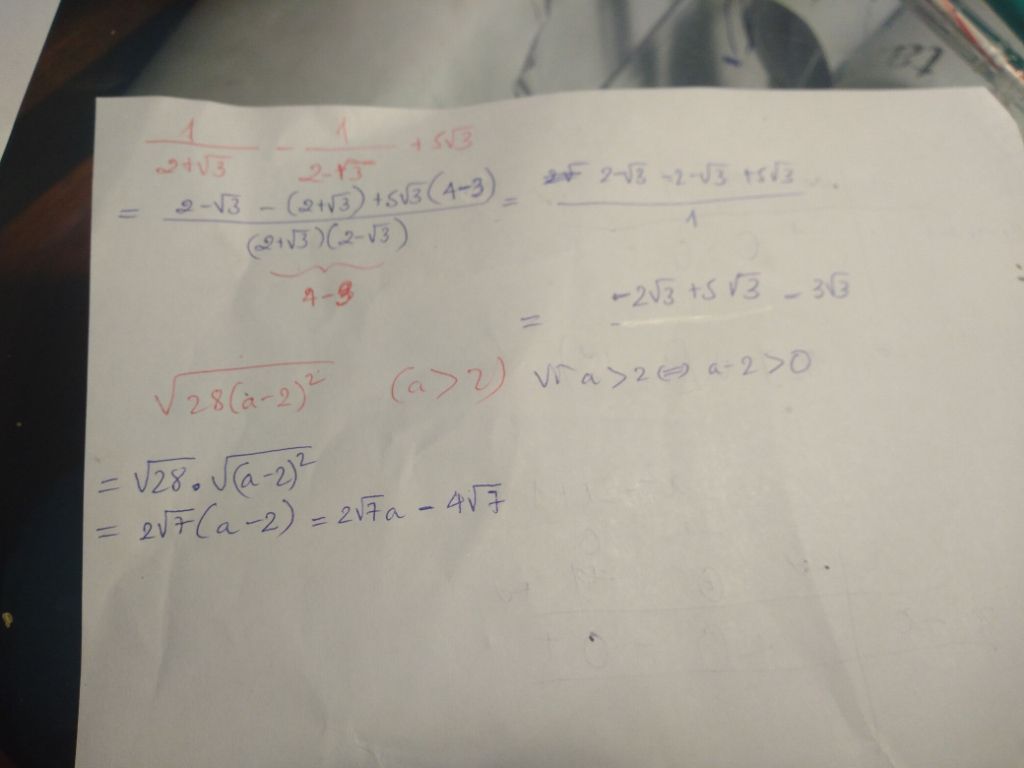 1/(2+√3) - 1/(2-√3) + 5√3
= (2-√3 - (2+√3) + 5√3(4-3))/((2+√3)(2-√3)) = (2-√3 -2-√3 +5√3)/1
4-3
= -2√3 +5√3 - 3√3
√(28(a-2)²) (a>2) a>2 ⇔ a-2>0
= √28 . √((a-2)²)
= 2√7(a-2) = 2√7a - 4√7